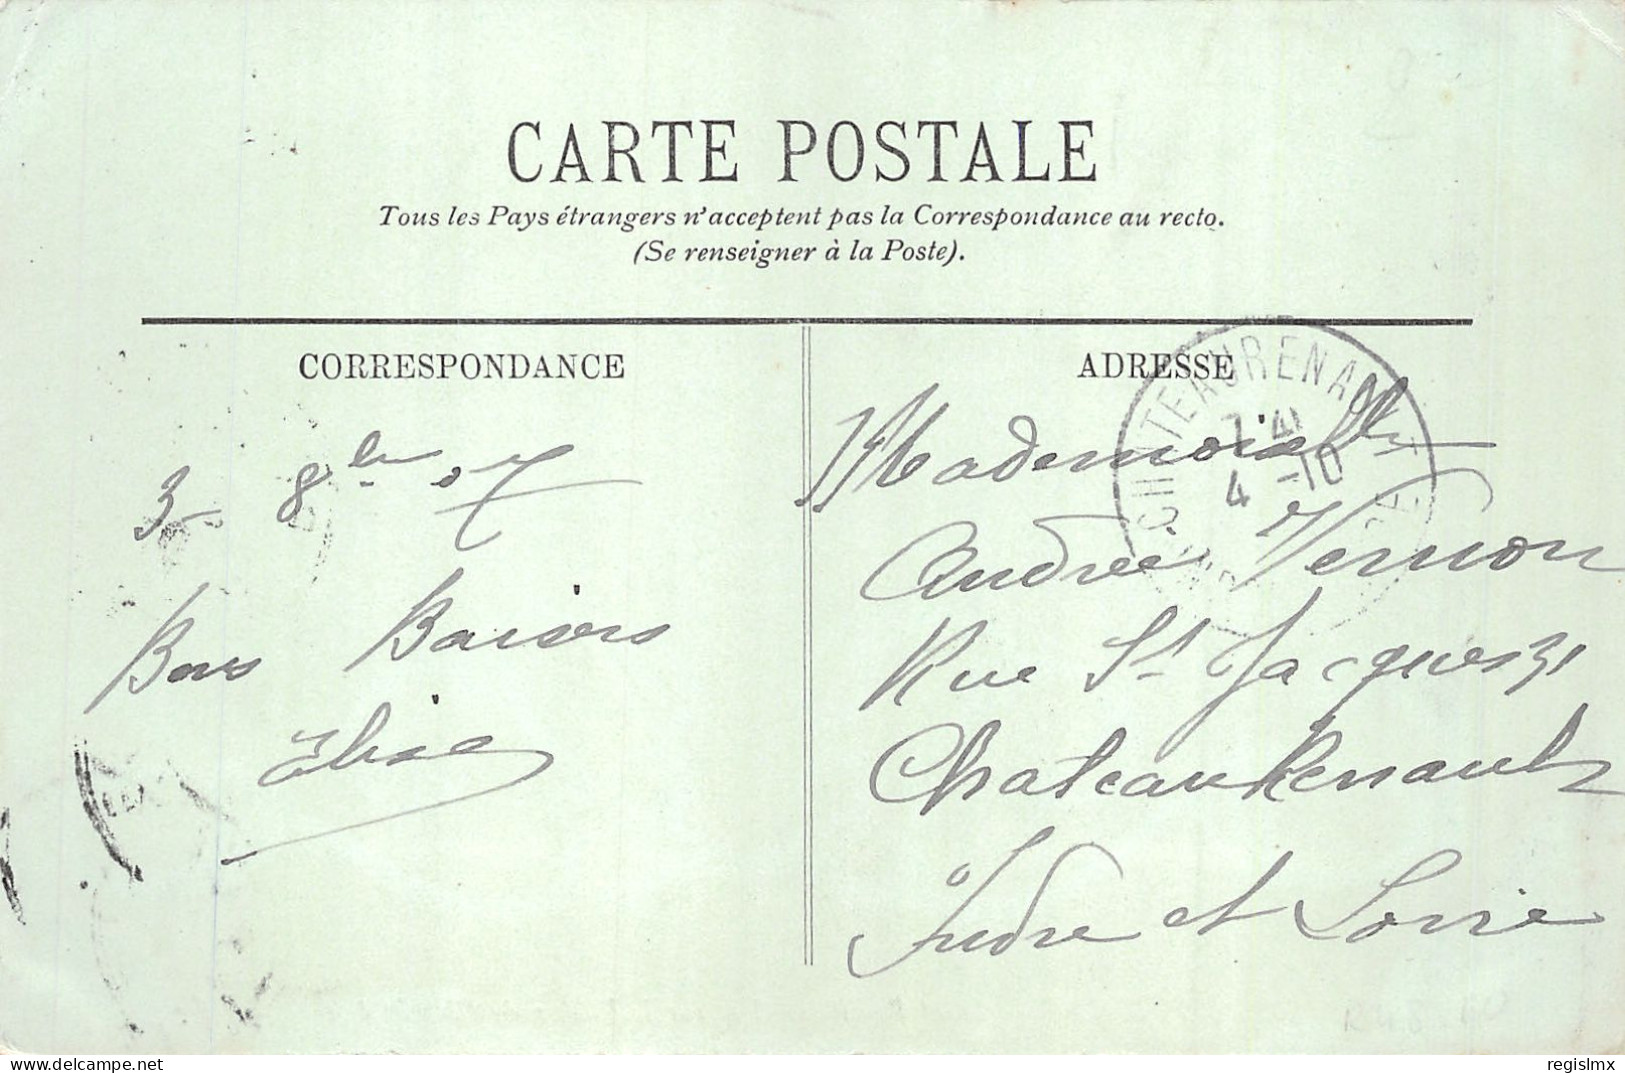 CARTE POSTALE
Tous les Pays étrangers n'acceptent pas la Correspondance au recto.
(Se renseigner à la Poste).
CORRESPONDANCE
3- 8bre 07
Bons Baisers
Elise
ADRESSE
Mademoiselle
Andrée Vernon
Rue St Jacques 31
ChateauRenault
Indre et Loire
CHATEAURENAULT
4 -10
www.delcampe.net
regislmx